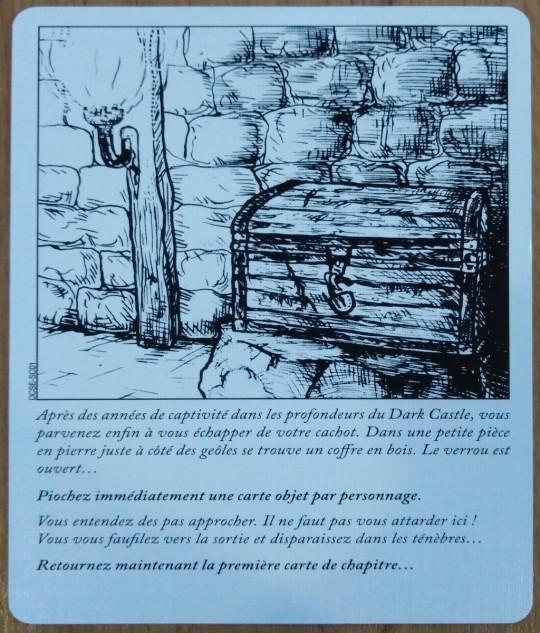 DCSE-SC01
Après des années de captivité dans les profondeurs du Dark Castle, vous
parvenez enfin à vous échapper de votre cachot. Dans une petite pièce
en pierre juste à côté des geôles se trouve un coffre en bois. Le verrou est
ouvert…
Piochez immédiatement une carte objet par personnage.
Vous entendez des pas approcher. Il ne faut pas vous attarder ici !
Vous vous faufilez vers la sortie et disparaissez dans les ténèbres…
Retournez maintenant la première carte de chapitre…